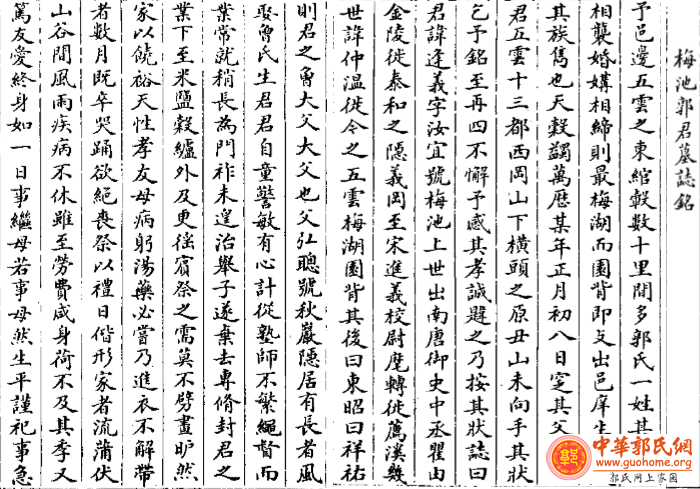 梅池郭君墓誌銘
予邑邊五雲之東綰轂數十里間多郭氏一姓其
相襲婚媾相締則最梅湖而園背即支出邑庠生
其族雋也天毅蠲萬曆某年正月初八日窆其父
君五雲十三都西岡山下橫頭之原丑山未向手其狀
乞予銘至再四不懈予感其孝誠題之乃按其狀誌曰
君諱逢義字汝宜號梅池上世出南唐御史中丞瞿由
金陵徙泰和之隱義岡至宋進義校尉麾轉徙萬溪幾
世諱仲溫徙今之五雲梅湖園背其後曰東昭曰祥祐
則君之曾大父大父也父弘聰號秋巖隱居有長者風
娶曾氏生君君自童警敏有心計從塾師不繁繩督而
業常就稍長為門祚未遑治舉子遂棄去專脩封君之
業下至米鹽穀纑外及更徭賓祭之需莫不劈畫旷然
家以饒裕天性孝友母病躬湯藥必嘗乃進衣不解帶
者數月既卒哭踊欲絕喪祭以禮日偕形家者流蒲伏
山谷間風雨疾病不休雖至勞費咸身荷不及其季又
篤友愛終身如一日事繼母若事母然生平謹祀事急
中華郭氏網
www.guohome.org
郭氏网上家园